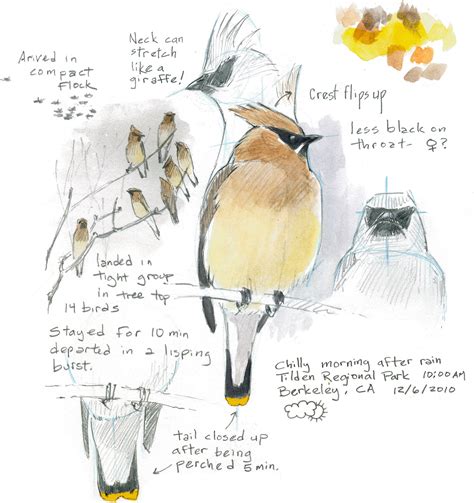 Arived in
compact
flock
Neck can
stretch
like a
giraffe!
Crest flips up
less black on
throat- ♀?
landed in
tight group
in tree top
14 birds
Stayed for 10 min
departed in a lisping
burst.
Chilly morning after rain
Tilden Regional Park 10:00AM
Berkeley, CA 12/6/2010
tail closed up
after being
perched 5 min.